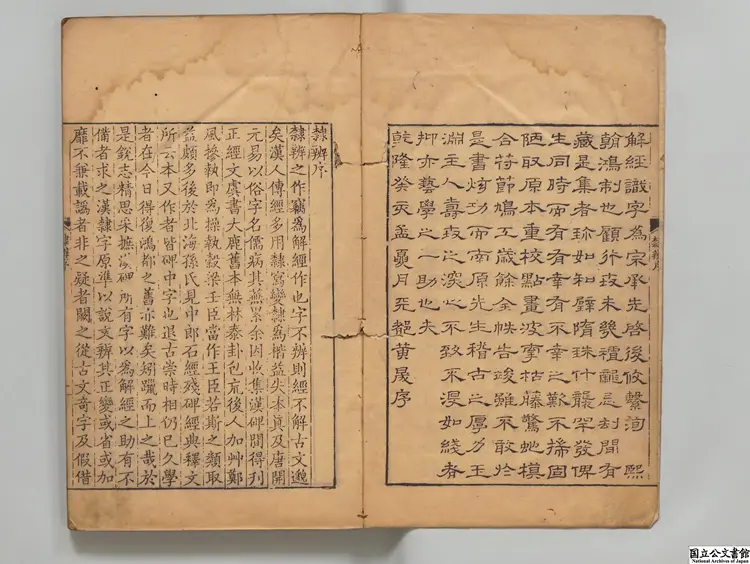 解經識字為宗承先啓後攸繫洵 熙
翰鴻制也顧行未幾禮龕忌刦閒有
藏是集者珍如和璧隋珠什襲罕發俾
生同時而有有幸有不幸之歎不揣固
陋取原本重校點畫波摩枯藤驚虵模
合符節鳩工歲餘全帙告竣雖不敢於
是書炫功而南原先生稽古之厚力玉
淵主人壽之深心不致不如綫者
抑亦藝學之一助也夫
乾隆癸亥孟夏月天都黄晟序
隸辨序
隸辨之作竊為解經作也字不辨則經不解古文邈
矣漢人傳經多用隸寫變隸為楷益失本真及唐開
元易以俗字名儒病其蕪累余因收集漢碑閒得刊
正經文虞書大鹿舊本無林泰卦包巟後人加艸鄭
風摻執即為操執穀梁壬臣當作王臣若斯之類取
益頗多後於北海孫氏見中郎石經殘碑經典釋文
所云本又作者皆碑中字也退古崇時相仍已久學
者在今日得復鴻都之舊亦難矣矧躐而上之哉於
是銳志精思采摭漢碑所有字以為解經之助有不
備者求之漢隸字原準以說文辨其正變或省或加
靡不兼載譌者非之疑者闕之從古文奇字及假借
国立公文書館
National Archives of Japan